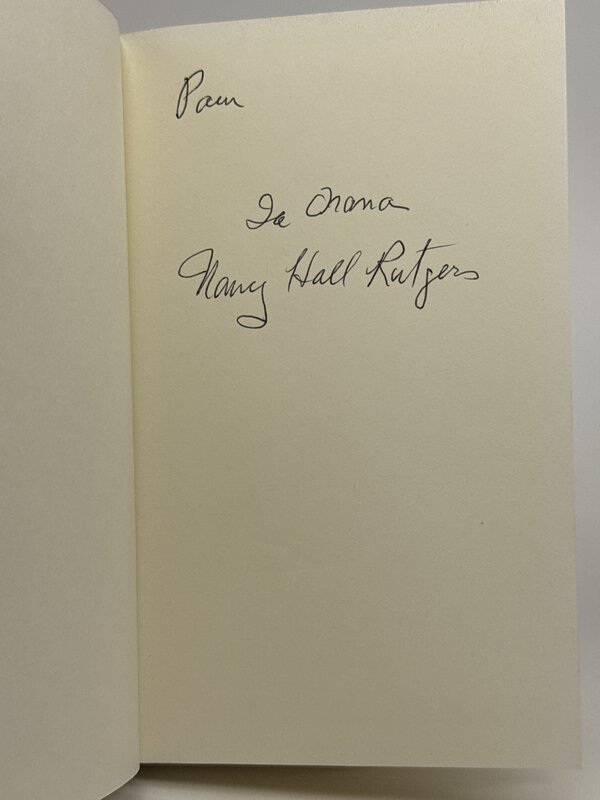 Pam
Ia Orana
Nancy Hall Rutgers